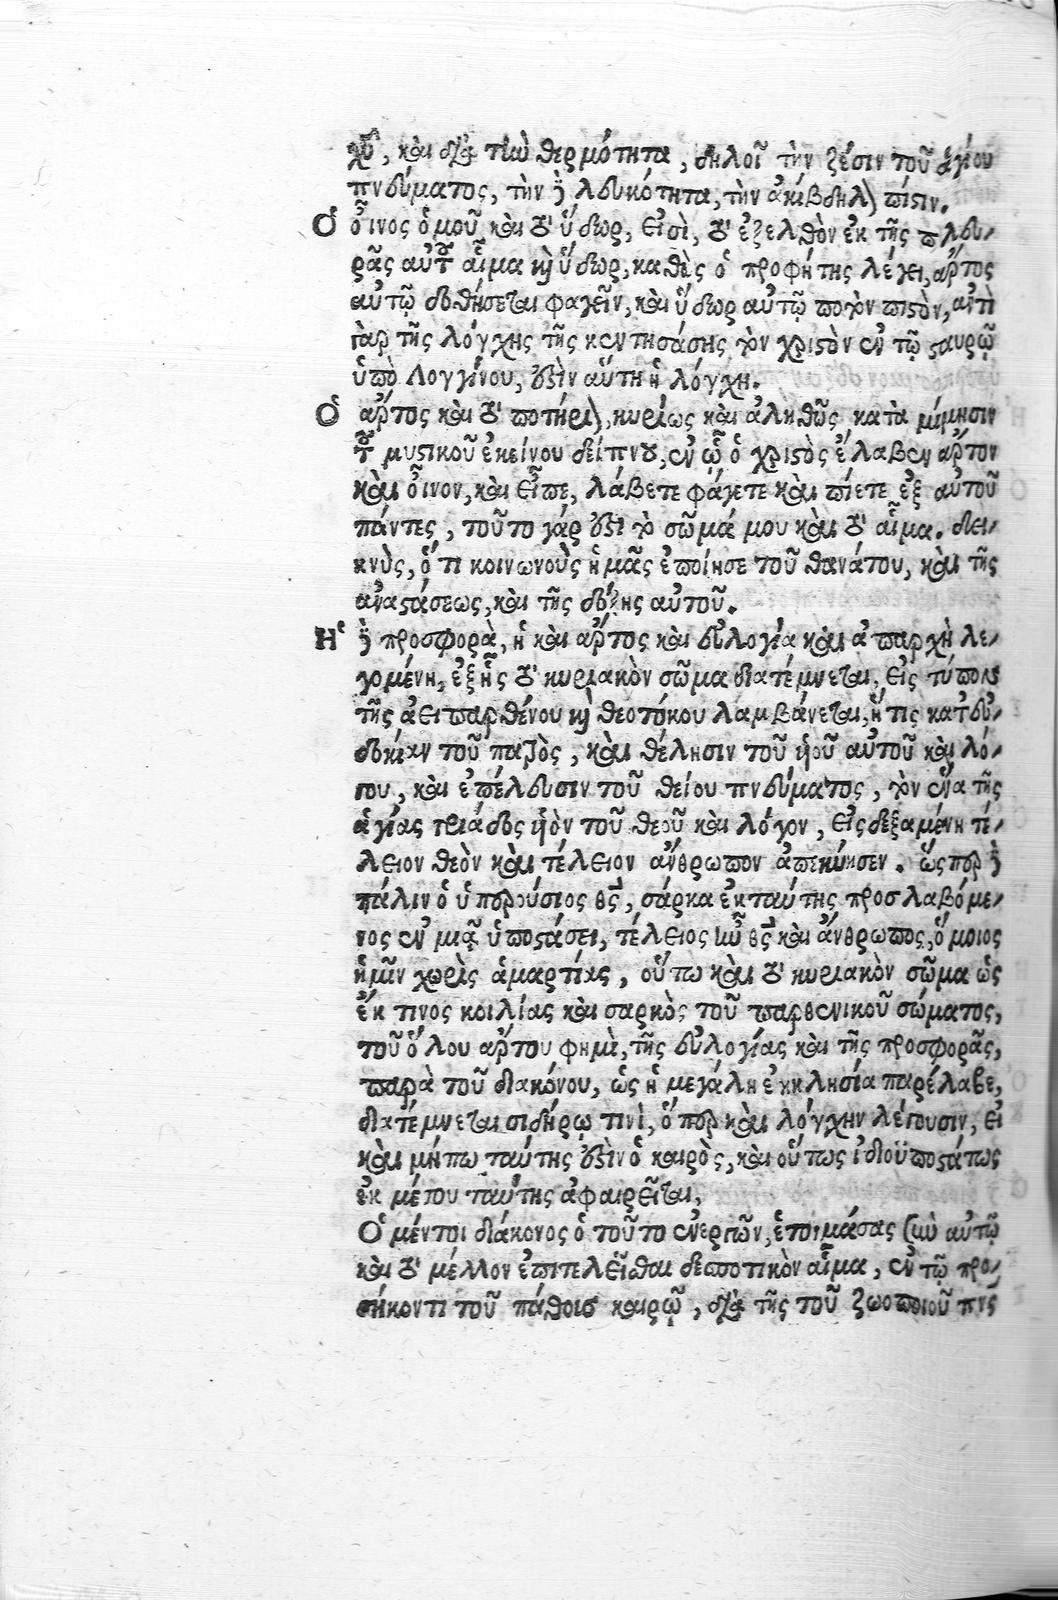 χῦ, καὶ διὰ τὴν θερμότητα, δηλοῖ τὴν ζέσιν τοῦ ἁγίου
πνεύματος, τὴν δὲ λευκότητα, τὴν ἀκίβδηλον πίστιν.
Ὁ οἶνος ὁμοῦ καὶ τὸ ὕδωρ, εἰσὶ, τὸ ἐξελθὸν ἐκ τῆς πλευ-
ρᾶς αὐτοῦ αἷμα καὶ ὕδωρ, καθὼς ὁ προφήτης λέγει, ἄρτος
αὐτῷ δοθήσεται φαγεῖν, καὶ ὕδωρ αὐτῷ ποτὸν πιστὸν, ἀντὶ
γὰρ τῆς λόγχης τῆς κεντησάσης τὸν χριστὸν ἐν τῷ σταυρῷ
ὑπὸ Λογγίνου, ἐστὶν αὕτη ἡ λόγχη.
Ὁ ἄρτος καὶ τὸ ποτήριον, κυρίως καὶ ἀληθῶς κατὰ μίμησιν
τοῦ μυστικοῦ ἐκείνου δείπνου, ἐν ᾧ ὁ χριστὸς ἔλαβεν ἄρτον
καὶ οἶνον, καὶ εἶπε, λάβετε φάγετε καὶ πίετε ἐξ αὐτοῦ
πάντες, τοῦτο γάρ ἐστι τὸ σῶμά μου καὶ τὸ αἷμα. δει-
κνὺς, ὅτι κοινωνοὺς ἡμᾶς ἐποίησε τοῦ θανάτου, καὶ τῆς
ἀναστάσεως, καὶ τῆς δόξης αὐτοῦ.
Ἡ δὲ προσφορὰ, ἡ καὶ ἄρτος καὶ εὐλογία καὶ ἀπαρχὴ λε-
γομένη, ἐξ ἧς τὸ κυριακὸν σῶμα διατέμνεται, εἰς τύπον
τῆς ἀειπαρθένου καὶ θεοτόκου λαμβάνεται, ἥτις κατ' εὐ-
δοκίαν τοῦ πατρὸς, καὶ θέλησιν τοῦ υἱοῦ αὐτοῦ καὶ λό-
γου, καὶ ἐπέλευσιν τοῦ θείου πνεύματος, τὸν ἕνα τῆς
ἁγίας τριάδος υἱὸν τοῦ θεοῦ καὶ λόγον, εἰσδεξαμένη τέ-
λειον θεὸν καὶ τέλειον ἄνθρωπον ἀπεκύησεν. ὥσπερ δὲ
πάλιν ὁ ὑπερούσιος θς, σάρκα ἐκ ταύτης προσλαβόμε-
νος ἐν μιᾷ ὑποστάσει, τέλειος ἦν θς καὶ ἄνθρωπος, ὅμοιος
ἡμῖν χωρὶς ἁμαρτίας, οὕτω καὶ τὸ κυριακὸν σῶμα ὡς
ἔκ τινος κοιλίας καὶ σαρκὸς τοῦ παρθενικοῦ σώματος,
τοῦ ὅλου ἄρτου φημὶ, τῆς εὐλογίας καὶ τῆς προσφορᾶς,
παρὰ τοῦ διακόνου, ὡς ἡ μεγάλη ἐκκλησία παρέλαβε,
διατέμνεται σιδήρῳ τινὶ, ὅπερ καὶ λόγχην λέγουσιν, εἰ
καὶ μήπω ταύτης ἐστὶν ὁ καιρὸς, καὶ οὕτως ἰδιοϋποστάτως
ἐκ μέσου ταύτης ἀφαιρεῖται,
Ὁ μέντοι διάκονος ὁ τοῦτο ἐνεργῶν, ἑτοιμάσας σὺν αὐτῷ
καὶ τὸ μέλλον ἐπιτελεῖσθαι δεσποτικὸν αἷμα, ἐν τῷ προ-
σήκοντι τοῦ πάθους καιρῷ, διὰ τῆς τοῦ ζωοποιοῦ πνς